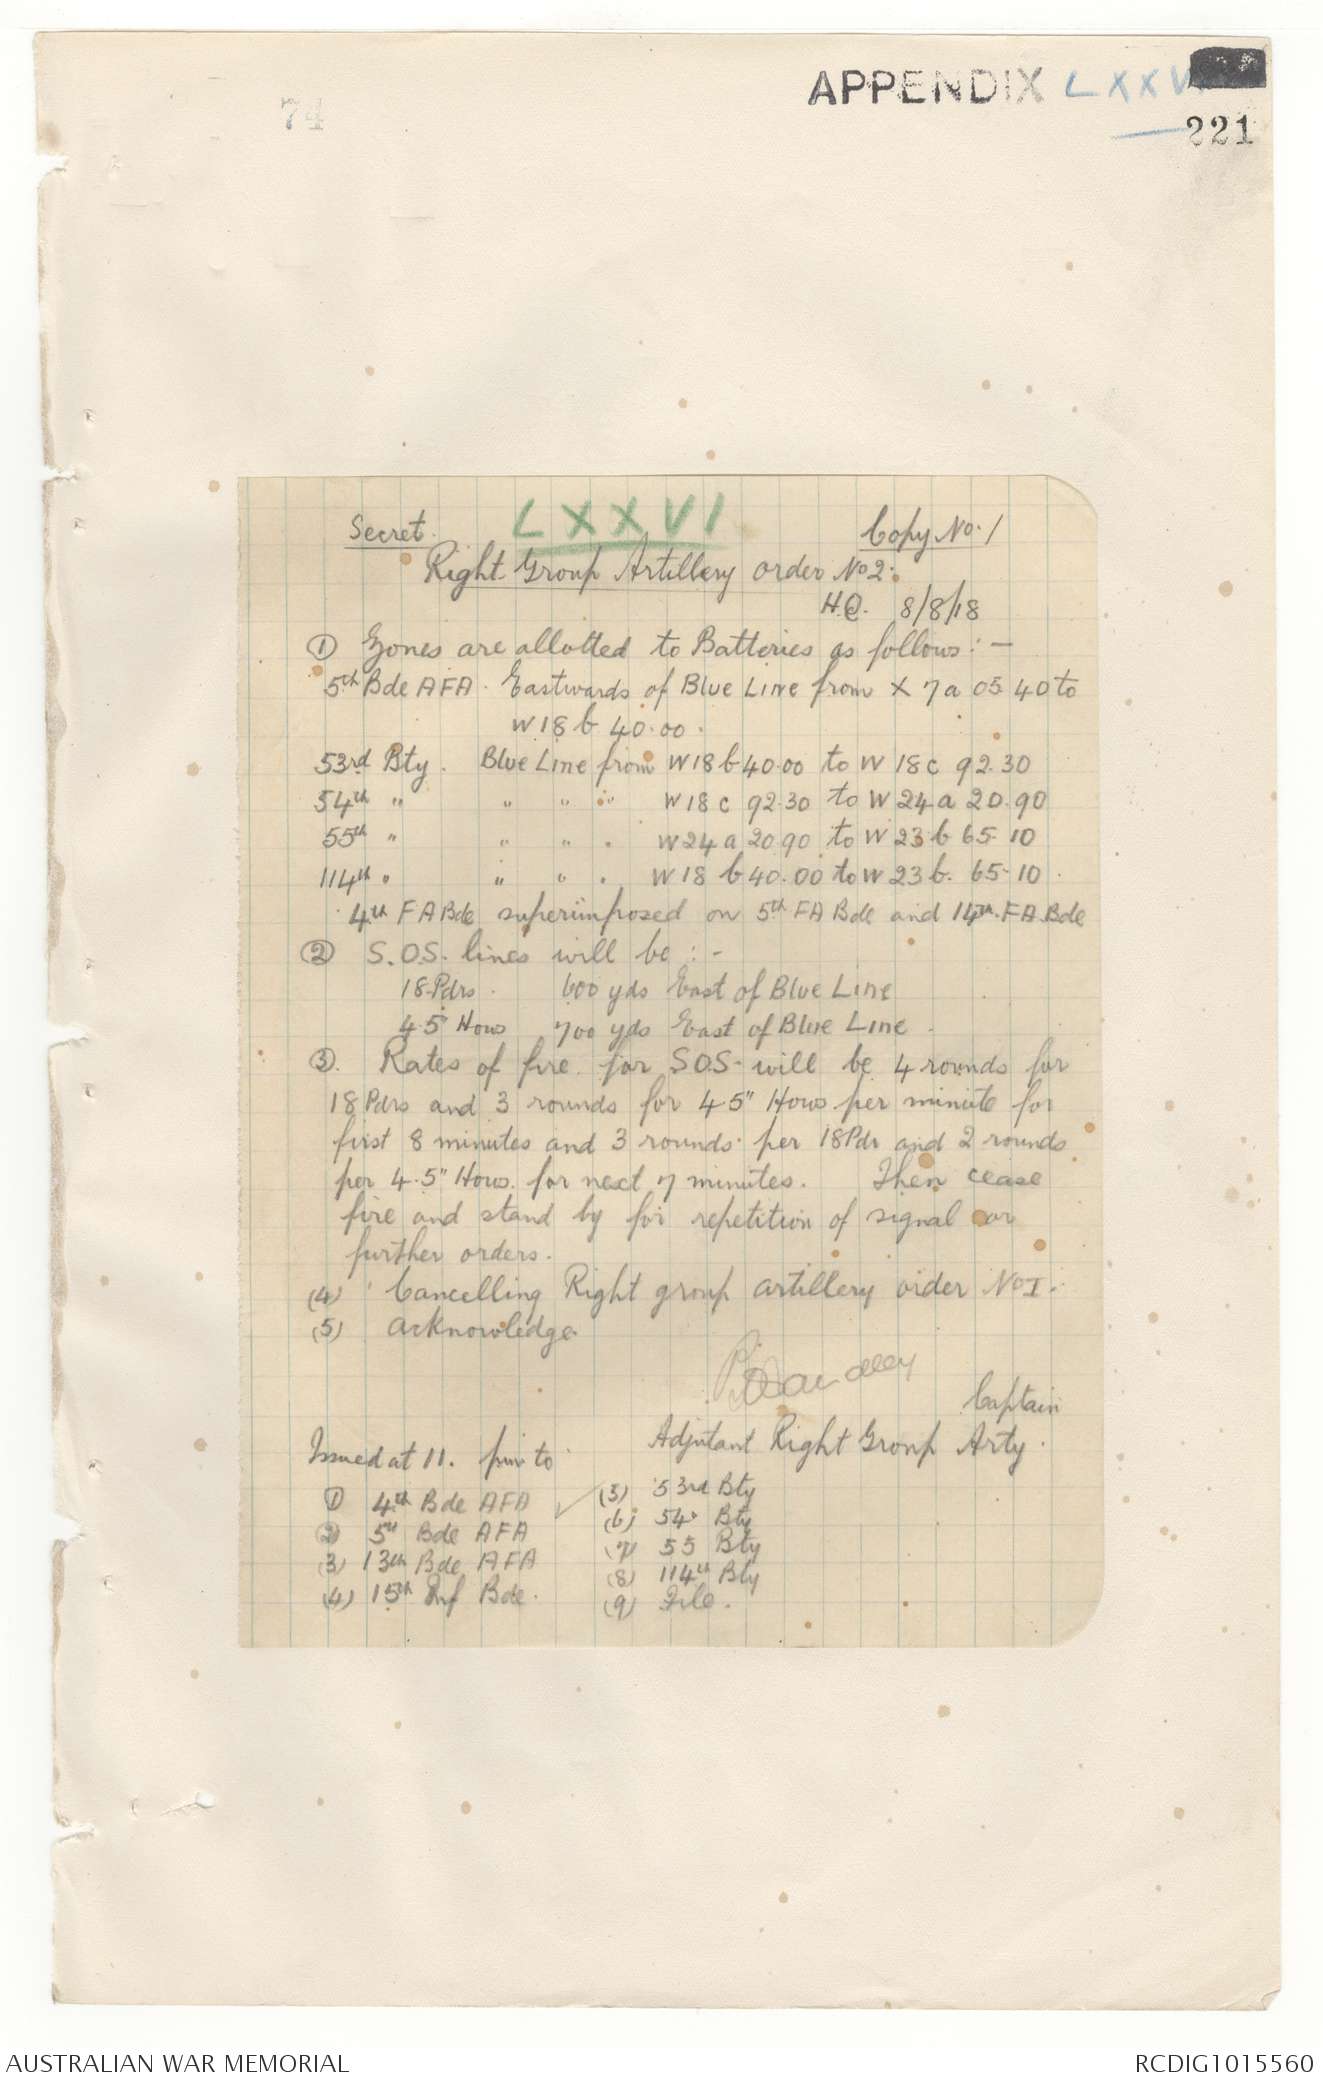 74
APPENDIX LXXVI
221
LXXVI
Secret. Copy No. 1
Right Group Artillery order No 2.
H.Q. 8/8/18
(1) Zones are allotted to Batteries as follows:-
5th Bde AFA. Eastwards of Blue Line from X 7a 05.40 to
W18 b 40.00.
53rd Bty. Blue Line from W18 b 40.00 to W 18c 92.30
54th " " " " W18 c 92.30 to W 24a 20.90
55th " " " " W24 a 20.90 to W 23 b 65.10
114th " " " " W18 b 40.00 to W 23 b. 65.10.
4th F A Bde superimposed on 5th FA Bde and 14th F.A. Bde
(2) S.O.S. lines will be:-
18 Pdrs. 600 yds East of Blue Line
4.5" Hows 700 yds East of Blue Line.
(3). Rates of fire for S.O.S. will be 4 rounds for
18 Pdrs and 3 rounds for 4.5" Hows per minute for
first 8 minutes and 3 rounds per 18 Pdr and 2 rounds
per 4.5" Hows. for next 7 minutes. Then cease
fire and stand by for repetition of signal or
further orders.
(4) Cancelling Right group artillery order No I.
(5) Acknowledge.
Captain
Adjutant Right Group Arty.
Issued at 11. pm to
(1) 4th Bde AFA
(2) 5th Bde AFA
(3) 13th Bde AFA
(4) 15th Inf Bde.
(5) 53rd Bty
(6) 54 Bty
(7) 55 Bty
(8) 114th Bty
(9) File.
AUSTRALIAN WAR MEMORIAL
RCDIG1015560